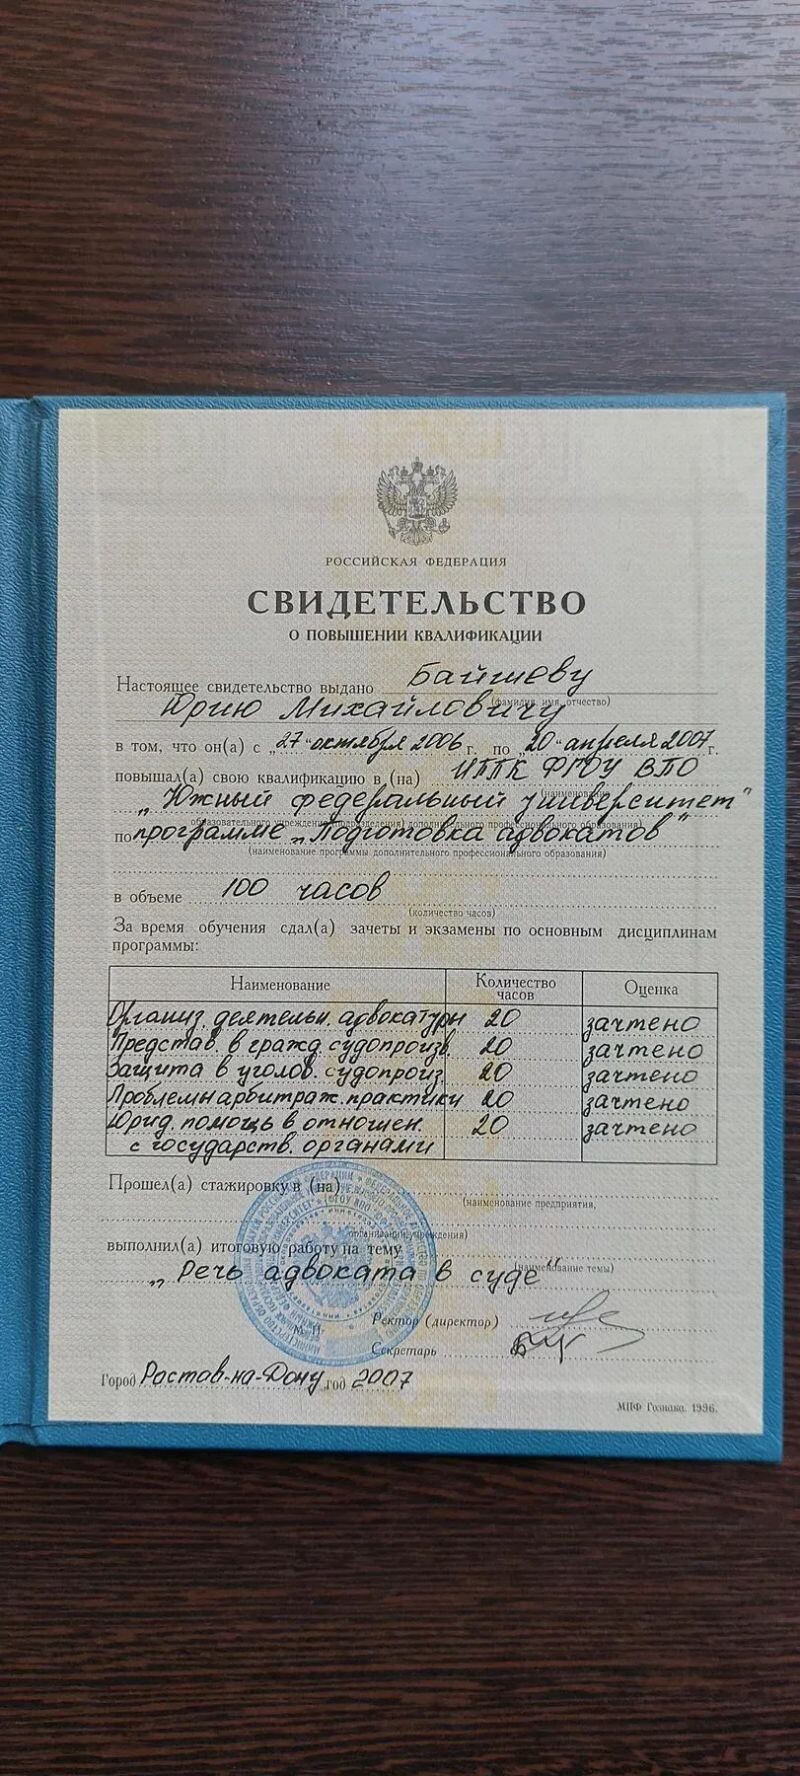 РОССИЙСКАЯ ФЕДЕРАЦИЯ
СВИДЕТЕЛЬСТВО
О ПОВЫШЕНИИ КВАЛИФИКАЦИИ
Настоящее свидетельство выдано Байшеву
(фамилия, имя, отчество)
Юрию Михайловичу
в том, что он(а) с „27" октября 2006 г. по „20" апреля 2007 г.
повышал(а) свою квалификацию в (на) ИППК ФГОУ ВПО
(наименование
„Южный федеральный университет"
образовательного учреждения (подразделения) дополнительного профессионального образования)
по программе „Подготовка адвокатов"
(наименование программы дополнительного профессионального образования)
в объеме 100 часов
(количество часов)
За время обучения сдал(а) зачеты и экзамены по основным дисциплинам
программы:
Наименование Количество часов Оценка
Организ. деятельн. адвокатуры 20 зачтено
Представ. в гражд. судопроизв. 20 зачтено
Защита в уголов. судопроиз. 20 зачтено
Проблемы арбитраж. практики 20 зачтено
Юрид. помощь в отношен. 20 зачтено
с государств. органами
Прошел(а) стажировку в (на)
(наименование предприятия,
организации, учреждения)
выполнил(а) итоговую работу на тему
(наименование темы)
„Речь адвоката в суде"
М. П. Ректор (директор)
Секретарь
Город Ростов-на-Дону год 2007
МПФ Гознака. 1996.